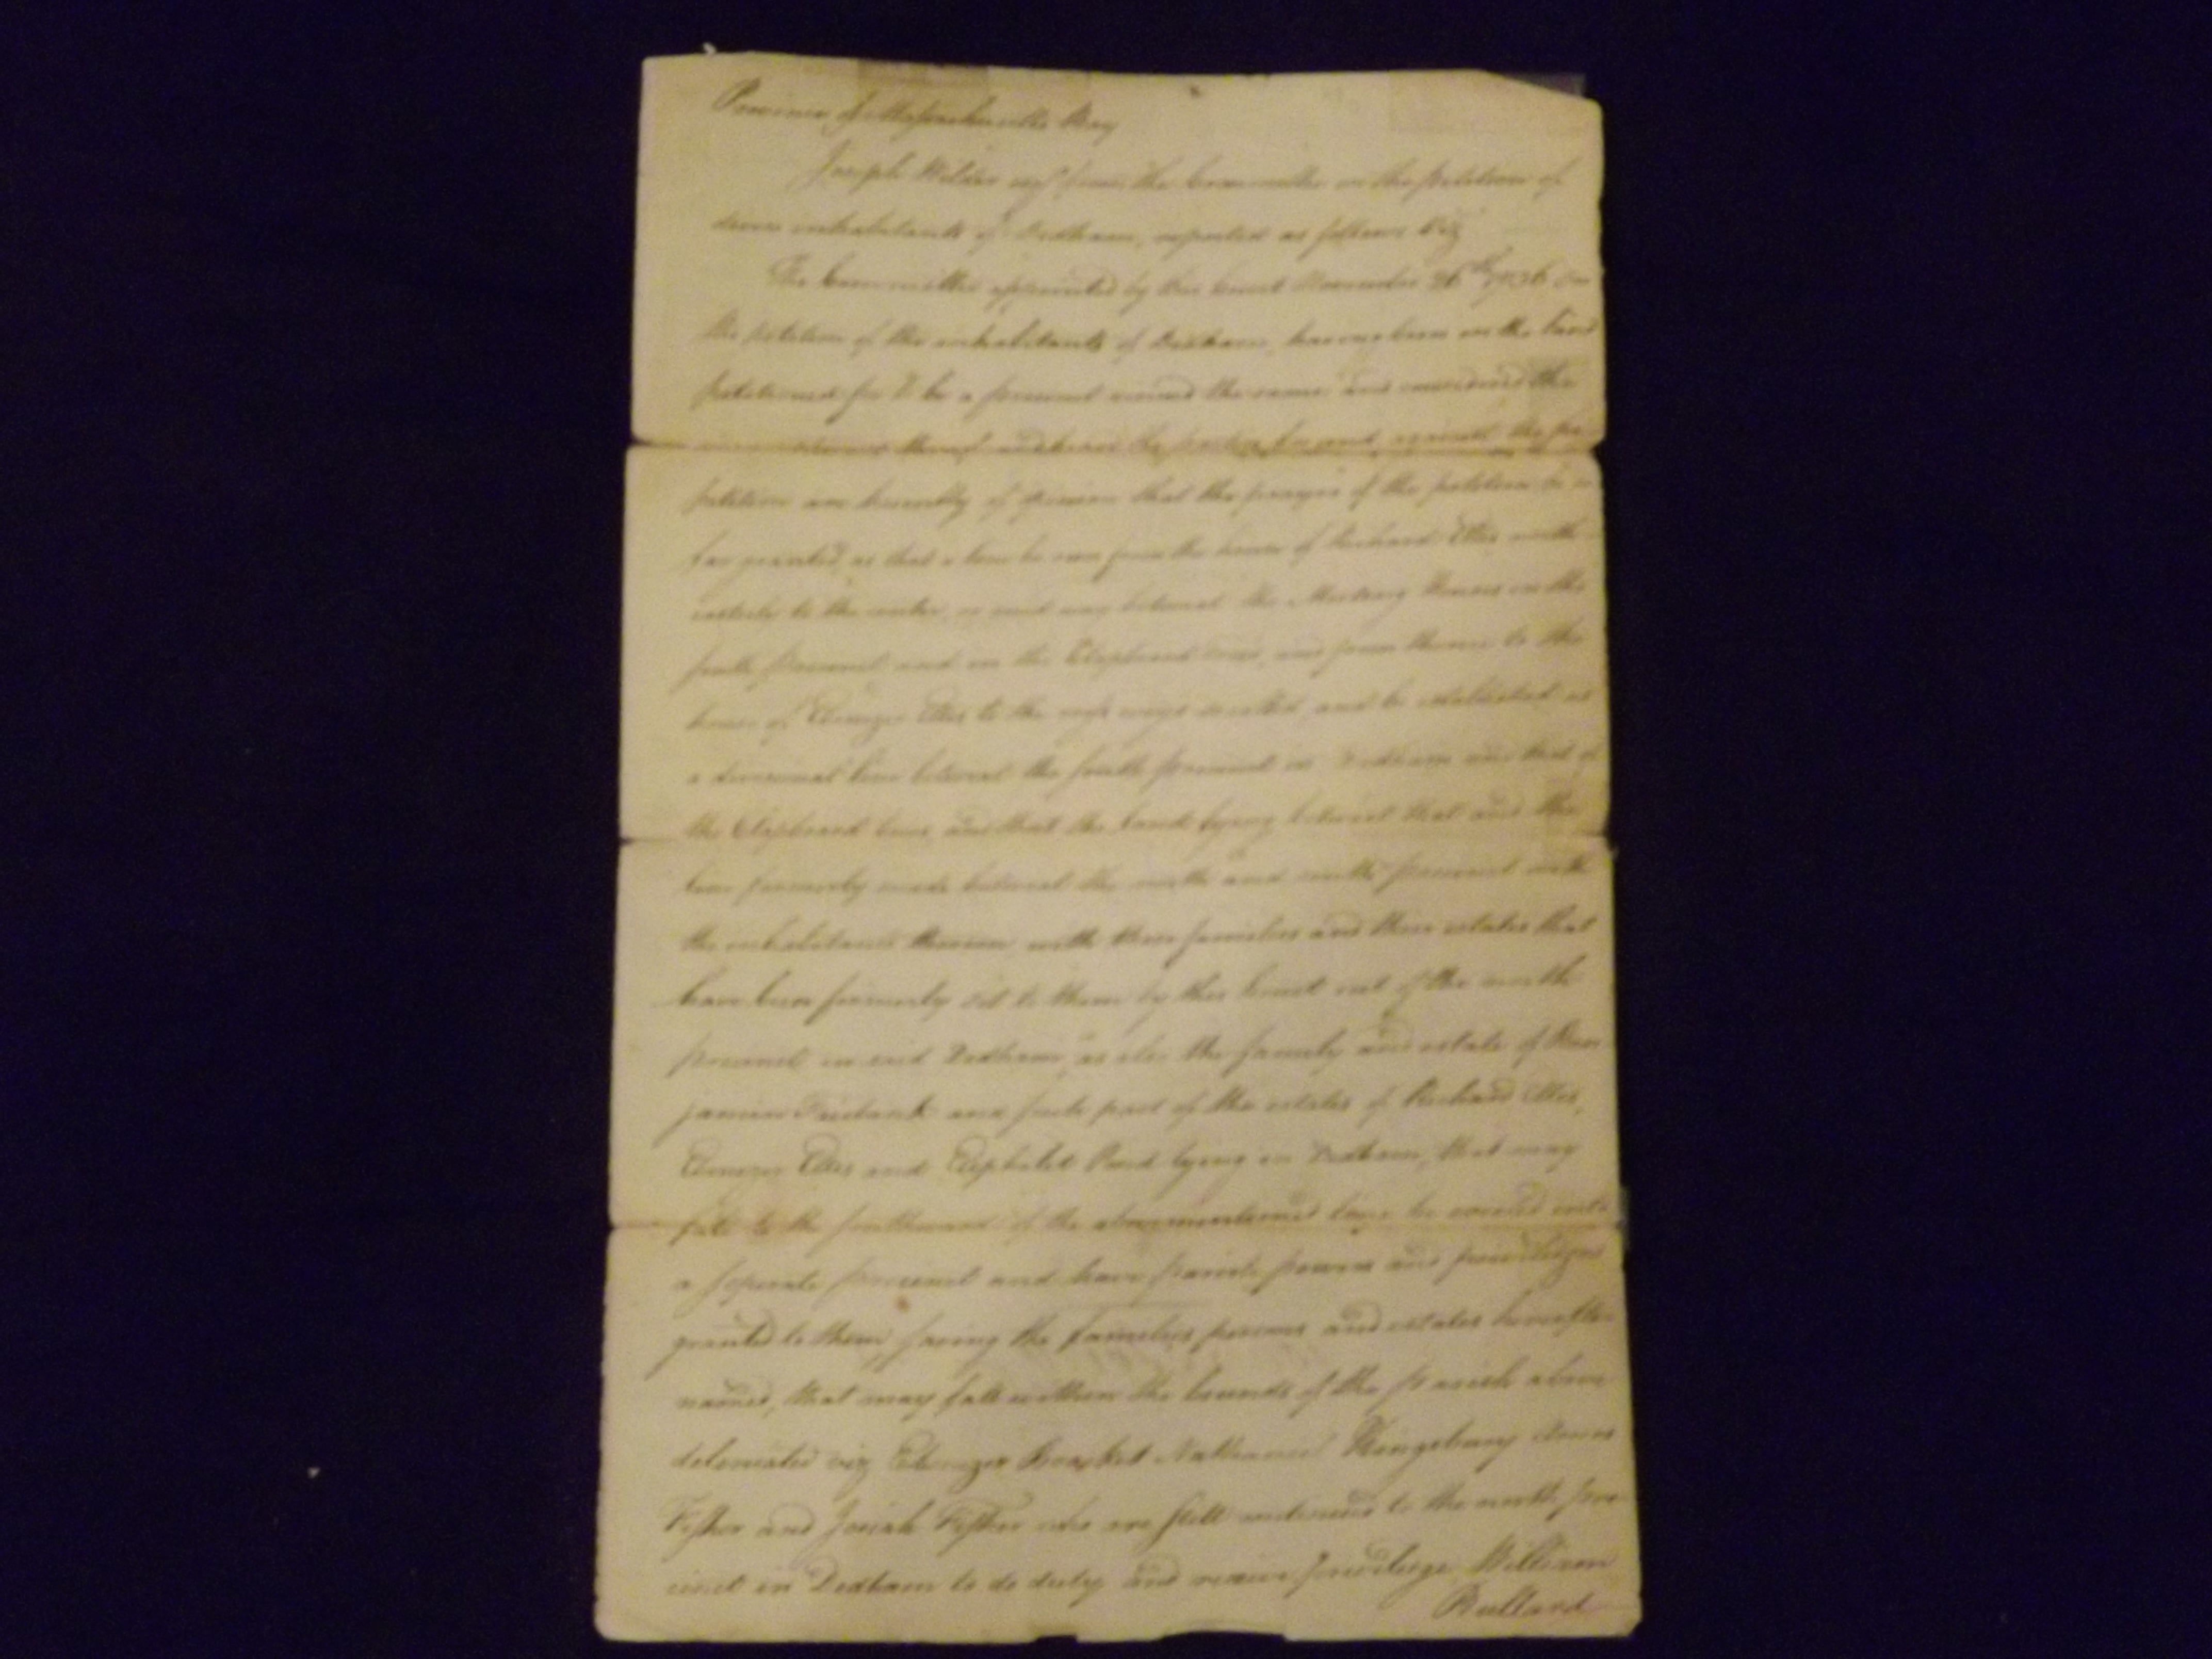 Province of Massachusetts Bay
Joseph Wilder esqr from the Committee on the petition of
divers inhabitants of Dedham, reported as follows Viz
The Committee appointed by this Court November 26th 1736 on
the petition of the inhabitants of Dedham, having been on the land
petitioned for to be a precinct viewed the same and considered the
thereof and heard the parties for and against the pe
petition are humbly of opinion that the prayer of the petition be so
far granted, as that a line be run from the house of Richard Ellis north
easterly to the center, or mid way between the Meeting Houses in the
south precinct, and in the Clapboard trees, and from thence to the
house of Ebenezer Ellis to the and be established as
a divisional line between the south precinct in Dedham and that of
the Clapboard trees, and that the land lying between that and the
line formerly made between the north and south precinct with
the inhabitants thereon, with those families and their estates that
have been formerly set to them by this Court out of the north
precinct in said Dedham, as also the family and estate of Ben
jamin Fairbank and such part of the estates of Richard Ellis,
Ebenezer Ellis and Eliphalet Pond lying in Dedham, that may
fall to the southward of the abovementioned line be erected into
a seperate precinct and have parish powers and priviledges
granted to them saving the families, persons and estates hereafter
named, that may fall within the bounds of the parish above
deleniated viz Ebenezer Nathaniel Kingsbury Amos
Fisher and Josiah Fisher who are still continued to the north pre
cinct in Dedham to do duty and receive priviledge William
Bullard